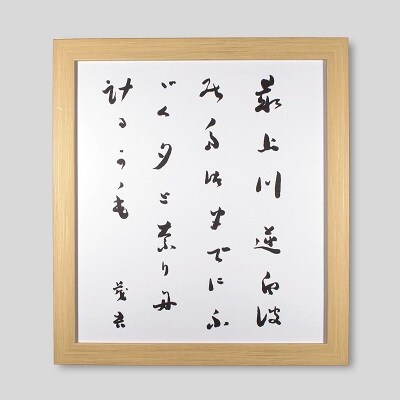 最上川逆白波
のたつまでにふ
ぶく夕となりに
けるかも
茂吉